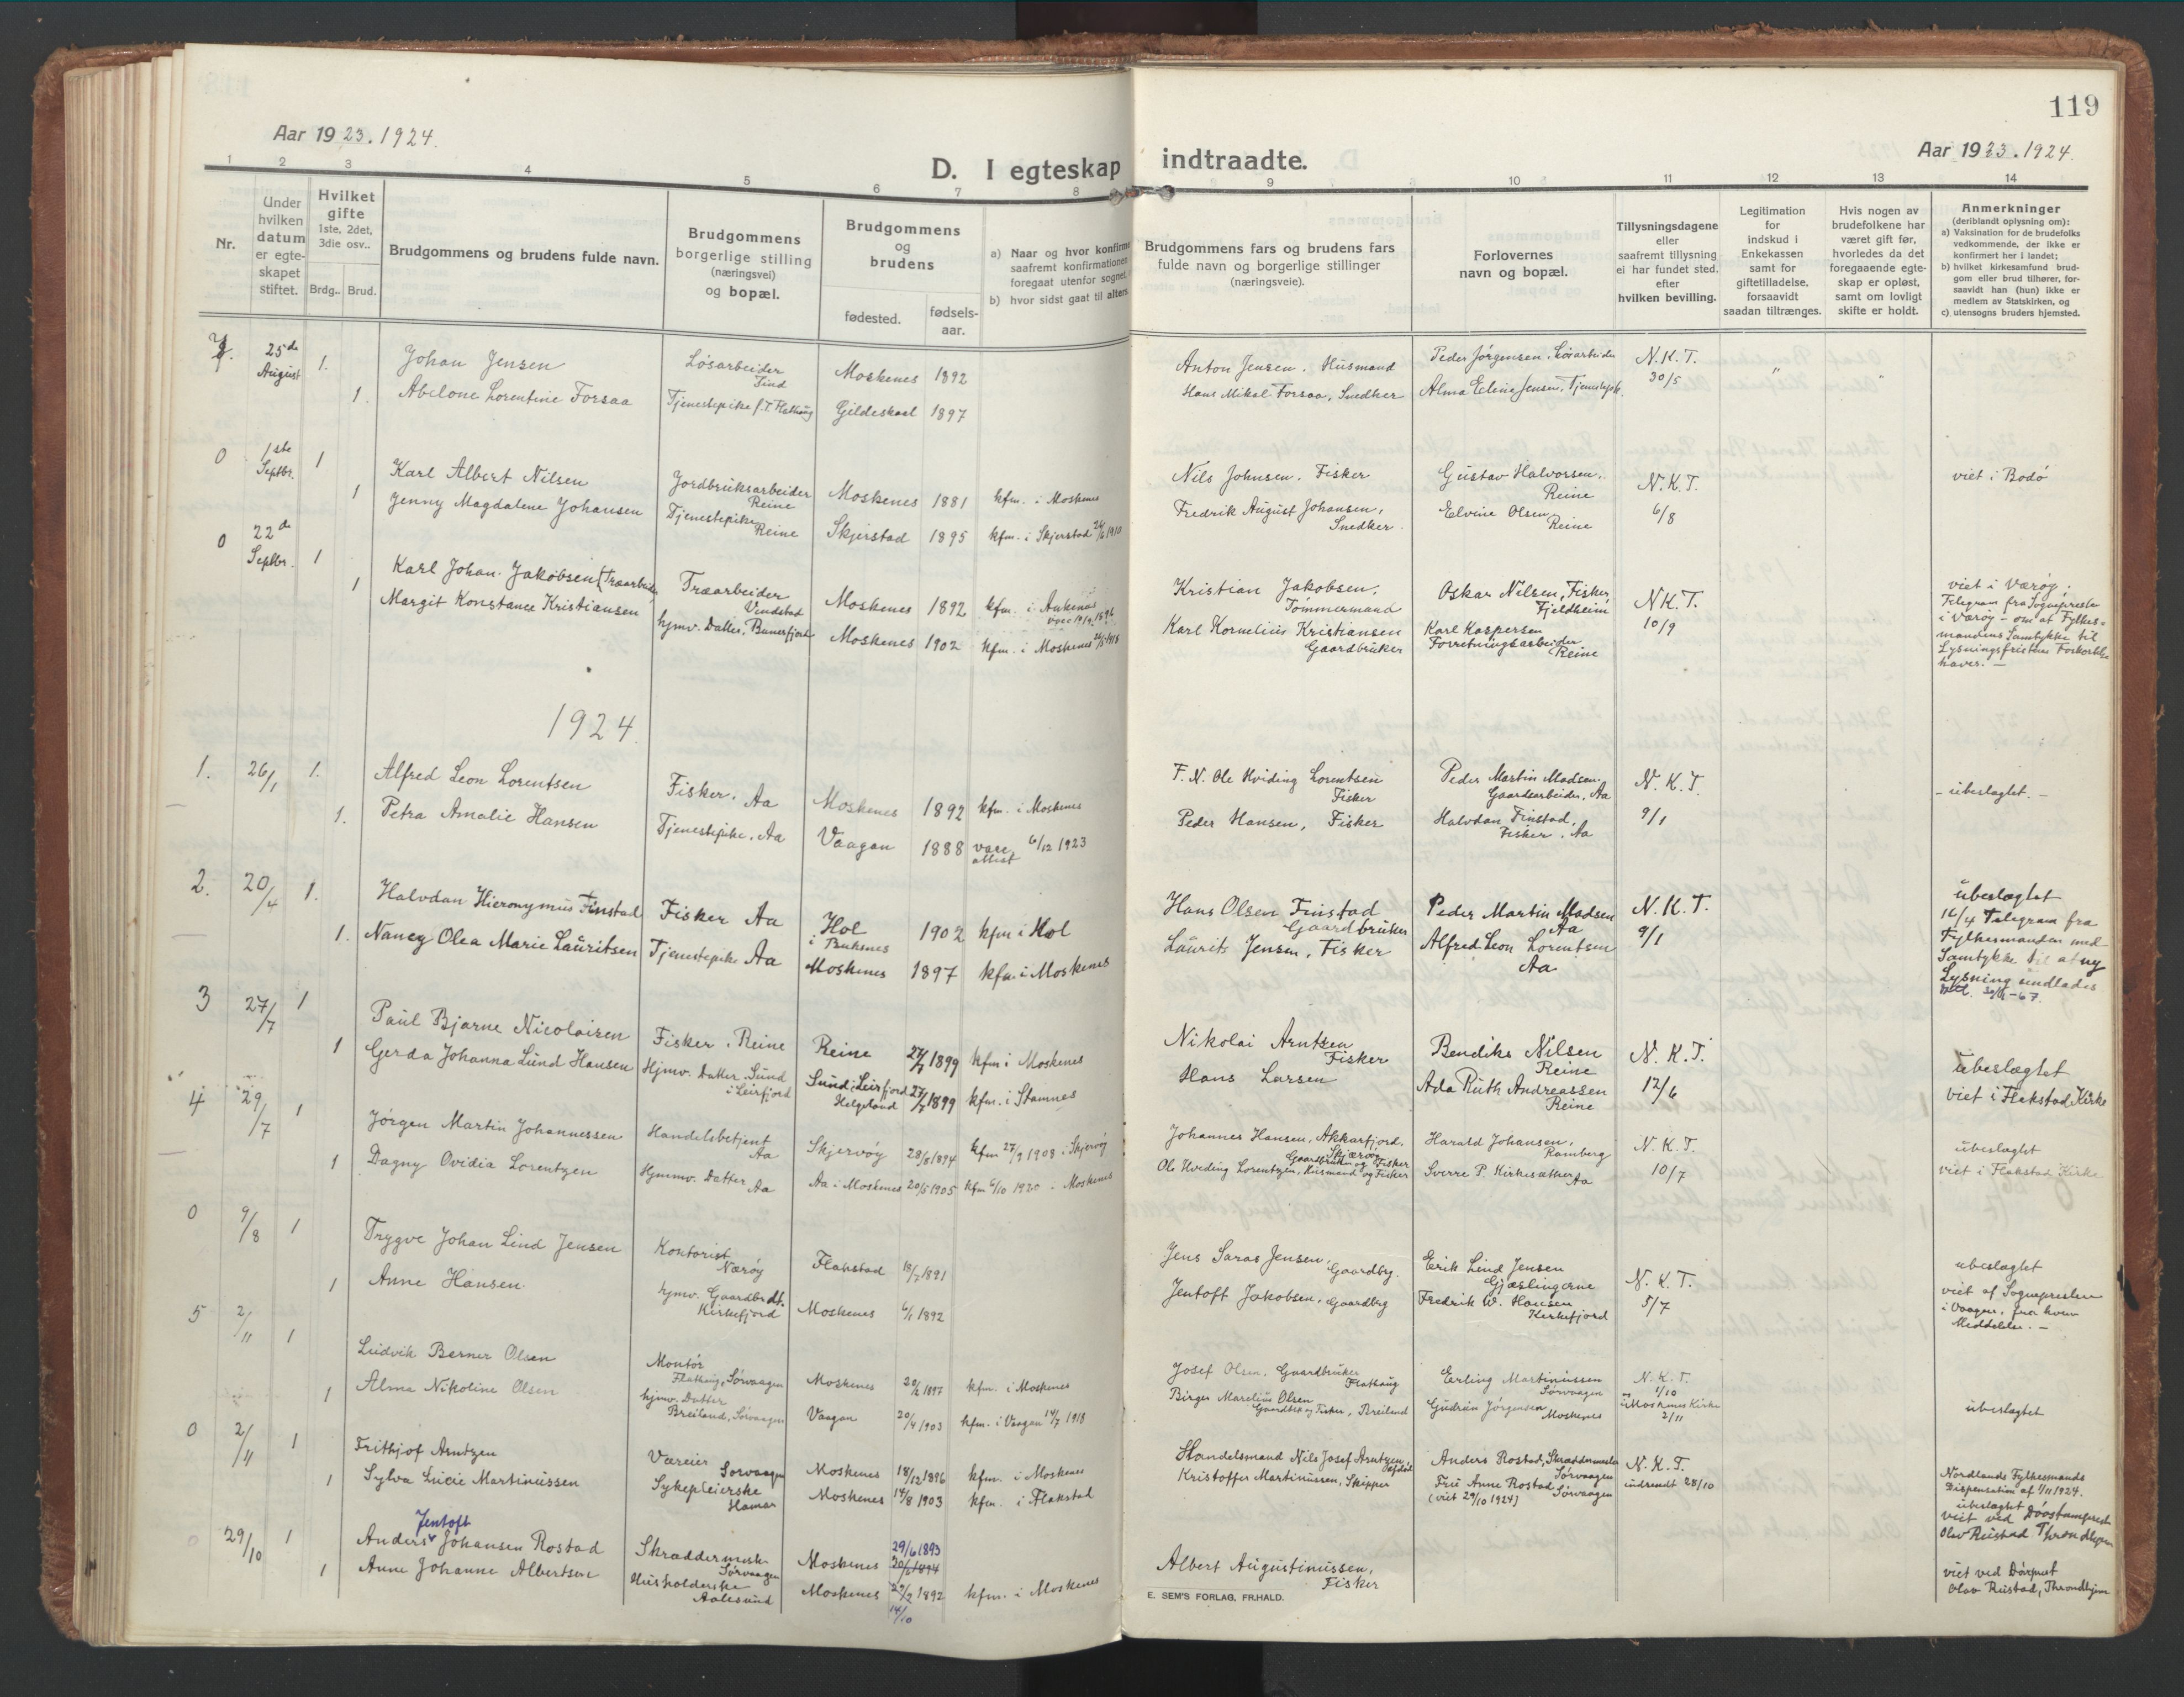 119
Aar 1923. 1924.
Aar 1923. 1924.
D. I egteskap indtraadte.
1 2 3 4 5 6 7 8 9 10 11 12 13 14
Nr.
Under hvilken datum er egteskapet stiftet.
Hvilket gifte 1ste, 2det, 3die osv..
Brdg.. Brud.
Brudgommens og brudens fulde navn.
Brudgommens borgerlige stilling (næringsvei) og bopæl.
Brudgommens og brudens
fødested.
fødselsaar.
a) Naar og hvor konfirme
saafremt konfirmationen
foregaat utenfor sognet.
b) hvor sidst gaat til alters.
Brudgommens fars og brudens fars
fulde navn og borgerlige stillinger
(næringsveie).
Forlovernes
navn og bopæl.
Tillysningsdagene
eller
saafremt tillysning
ei har fundet sted.
efter
hvilken bevilling.
Legitimation
for
indskud i
Enkekassen
samt for
giftetilladelse,
forsaavidt
saadan tiltrænges.
Hvis nogen av
brudefolkene har
været gift før,
hvorledes da det
foregaaende egteskap er opløst,
samt om lovligt
skifte er holdt.
Anmerkninger
(deriblandt oplysning om):
a) Vaksination for de brudefolks
vedkommende, der ikke er
konfirmert her i landet;
b) hvilket kirkesamfund brudgom eller brud tilhører, forsaavidt han (hun) ikke er
medlem av Statskirken, og
c) utensogns bruders hjemsted.
25de August 1. Johan Jensen Løsarbeider Tind Moskenes 1892 Anton Jensen. Husmand Peder Jørgensen. Løsarbeider N. K. T. 30/5 " "
1. Abelone Lorentine Forsaa Tjenestepike Gildeskaal 1897 Hans Mikal Forsaa, Snedker Alma Eline Jensen, Tjenestepike
0 1ste Septbr. 1 Karl Albert Nilsen Jordbruksarbeider Reine Moskenes 1881 kfm. i Moskenes Nils Johnsen. Fisker Gustav Halvorsen. Reine N. K. T. 6/8 viet i Bodø
1 Jenny Magdalene Johansen Tjenestepike Reine Skjerstad 1895 kfm. i Skjerstad 26/6 1910 Fredrik August Johansen, Snedker. Elvine Olsen Reine
0 22de Septbr. 1 Karl Johan Jakobsen (Træarbeider Træarbeider Vindstad Moskenes 1892 kfm. i Ankenes vacc 19/9 1896 Kristian Jakobsen, Tømmermand Oskar Nilsen, Fisker, Fjeldheim N.K.T. 10/9 viet i Værøy;
1 Margit Konstance Kristiansen hjmv. Datter, Bunesfjord Moskenes 1902 kfm. i Moskenes Karl Kornelius Kristiansen Gaardbruker Karl Kaspersen Forretningsarbeider Reine
Telegram fra Sognepresten
i Værøy - om at Fylkes=
mandens Samtykke til
Lysningsfristens Forkortelse
haves. -
1924.
1. 26/1 1. Alfred Leon Lorentsen Fisker. Aa Moskenes 1892 kfm. i Moskenes F. N. Ole Kviding Lorentsen Fisker Peder Martin Madsen. Gaardsarbeider, Aa N. K. T. 9/1 - ubeslagtet. -
1. Petra Amalie Hansen Tjenestepike. Aa Vaagan 1888 vacc. attest 6/12 1923 Peder Hansen, Fisker Halvdan Finstad, Fisker. Aa
2. 20/4 1. Halvdan Hieronymus Finstad Fisker Aa Hol i Buksnes 1902 kfm i Hol Hans Olsen Finstad Gaardbruker Peder Martin Madsen Aa N. K. T. 9/1 ubeslagtet
1. Nancy Olea Marie Lauritsen Tjenestepike Aa Moskenes 1897 kfm. i Moskenes Laurits Jensen, Fisker Alfred Leon Lorentsen Aa
16/4 Telegram fra
Fylkesmanden med
Samtykke til at ny
Lysning undlades
3 27/7 1 Paul Bjarne Nicolaisen Fisker. Reine Reine 1899 kfm i Moskenes Nikolai Arntzen Fisker Bendiks Nilsen Reine N. K. T. 12/6 ubeslagtet
1 Gerda Johanna Lund Hansen Hjmv. Datter. Sund i Leirfjord Sund, Leirfjord Helgeland 27/7 1899 kfm. i Stamnes Hans Larsen Ada Ruth Andreassen Reine viet i Flakstad Kirke
4 29/7 1 Jørgen Martin Johannessen Handelsbetjent Aa Skjervøy 28/8 1894 kfm 27/9 1908 i Skjervøy Johannes Hansen, Akkarfjord, Skjærvøy Gaardbruker og Fisker Harald Johansen, Ramberg N. K. T. 10/7 ubeslagtet
1 Dagny Ovidia Lorentzen Hjmv. Datter Aa Aa i Moskenes 20/5 1905 kfm 6/10 1920 i Moskenes Ole Hveding Lorentzen, Husmand og Fisker Sverre P. Kirkesæther Aa viet i Flakstad Kirke
0 9/8 1 Trygve Johan Lind Jensen Kontorist Nærøy Flakstad 18/7 1891 Jens Saras Jensen, Gaardbrg. Erik Lind Jensen Gjæslingerne N. K. T. 5/7 ubeslagtet
1 Anne Hansen. hjmv. Gaardbrdt. Kirkefjord Moskenes 6/1 1892 Jentoft Jakobsen, Gaardbrg Fredrik W. Hansen Kirkefjord viet af Sognepresten
i Vaagan, fra hvem
Meddelelse. -
5 2/11 1 Ludvik Berner Olsen Montør Flathaug, Sørvaagen Moskenes 20/2 1897 kfm. i Moskenes Josef Olsen, Gaardbruker Flathaug Erling Martinussen Sørvaagen N. K. T. 1/10 ubeslagtet
1 Alma Nikoline Olsen hjmv. Datter Breiland, Sørvaagen Vaagan 20/4 1903 kfm. i Vaagan 14/7 1918 Birger Marelius Olsen Gaardbr. og Fisker, Breiland Gudrun Jørgensen Moskenes i Moskenes Kirke 2/11
0 2/11 1 Frithjof Arntzen Væreier Sørvaagen Moskenes 18/12 1896 kfm. i Moskenes Handelsmand Nils Josef Arntzen, Anders Rostad, Skræddermester Sørvaagen N. K. T. indsendt 28/10
1 Sylva Lucie Martinussen Sykepleierske Hamar Moskenes 14/8 1903 kfm. i Flakstad Kristoffer Martinussen, Skipper Fru Anne Rostad Sørvaagen (viet 29/10 1924)
Nordlands Fylkesmands
Dispensation af 1/11 1924.
ubeslagtet
viet ved
Olav Rustad Throndhjem
0 29/10 1 Anders Jentoft Johansen Rostad Skræddermester Sørvaagen Moskenes 29/6 1893 kfm. i Moskenes
1 Anne Johanne Albertsen Husholderske Aalesund Moskenes 1892 14/10 Albert Augustinussen, Fisker viet ved
Olav Rustad, Throndhjem
E. SEM'S FORLAG, FR.HALD.